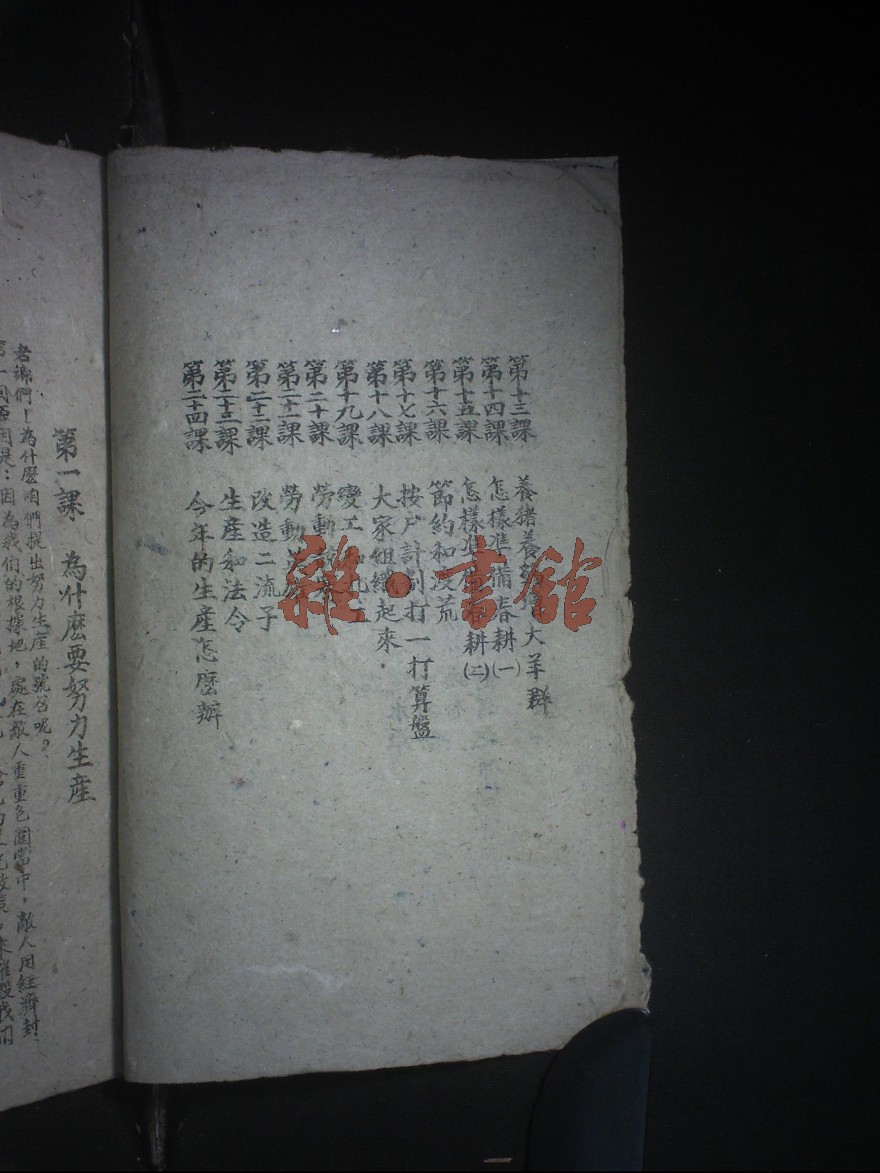 第十三課 養猪養 大羊群
第十四課 怎樣準備春耕(一)
第十五課 怎樣準 耕(二)
第十六課 節約和 荒
第十七課 按户計劃打一打算盤
第十八課 大家組織起來.
第十九課 變工 工
第二十課 勞動
第二十一課 勞動
第二十二課 改造二流子
第二十三課 生產和法令
第二十四課 今年的生產怎麼辦
第一課 為什麽要努力生產
老鄉們!為什麽咱們提出努力生產的號召呢?
第一個原因是:因為我們的根據地,處在敵人重重包圍當中,敵人用經濟封
雜·書館